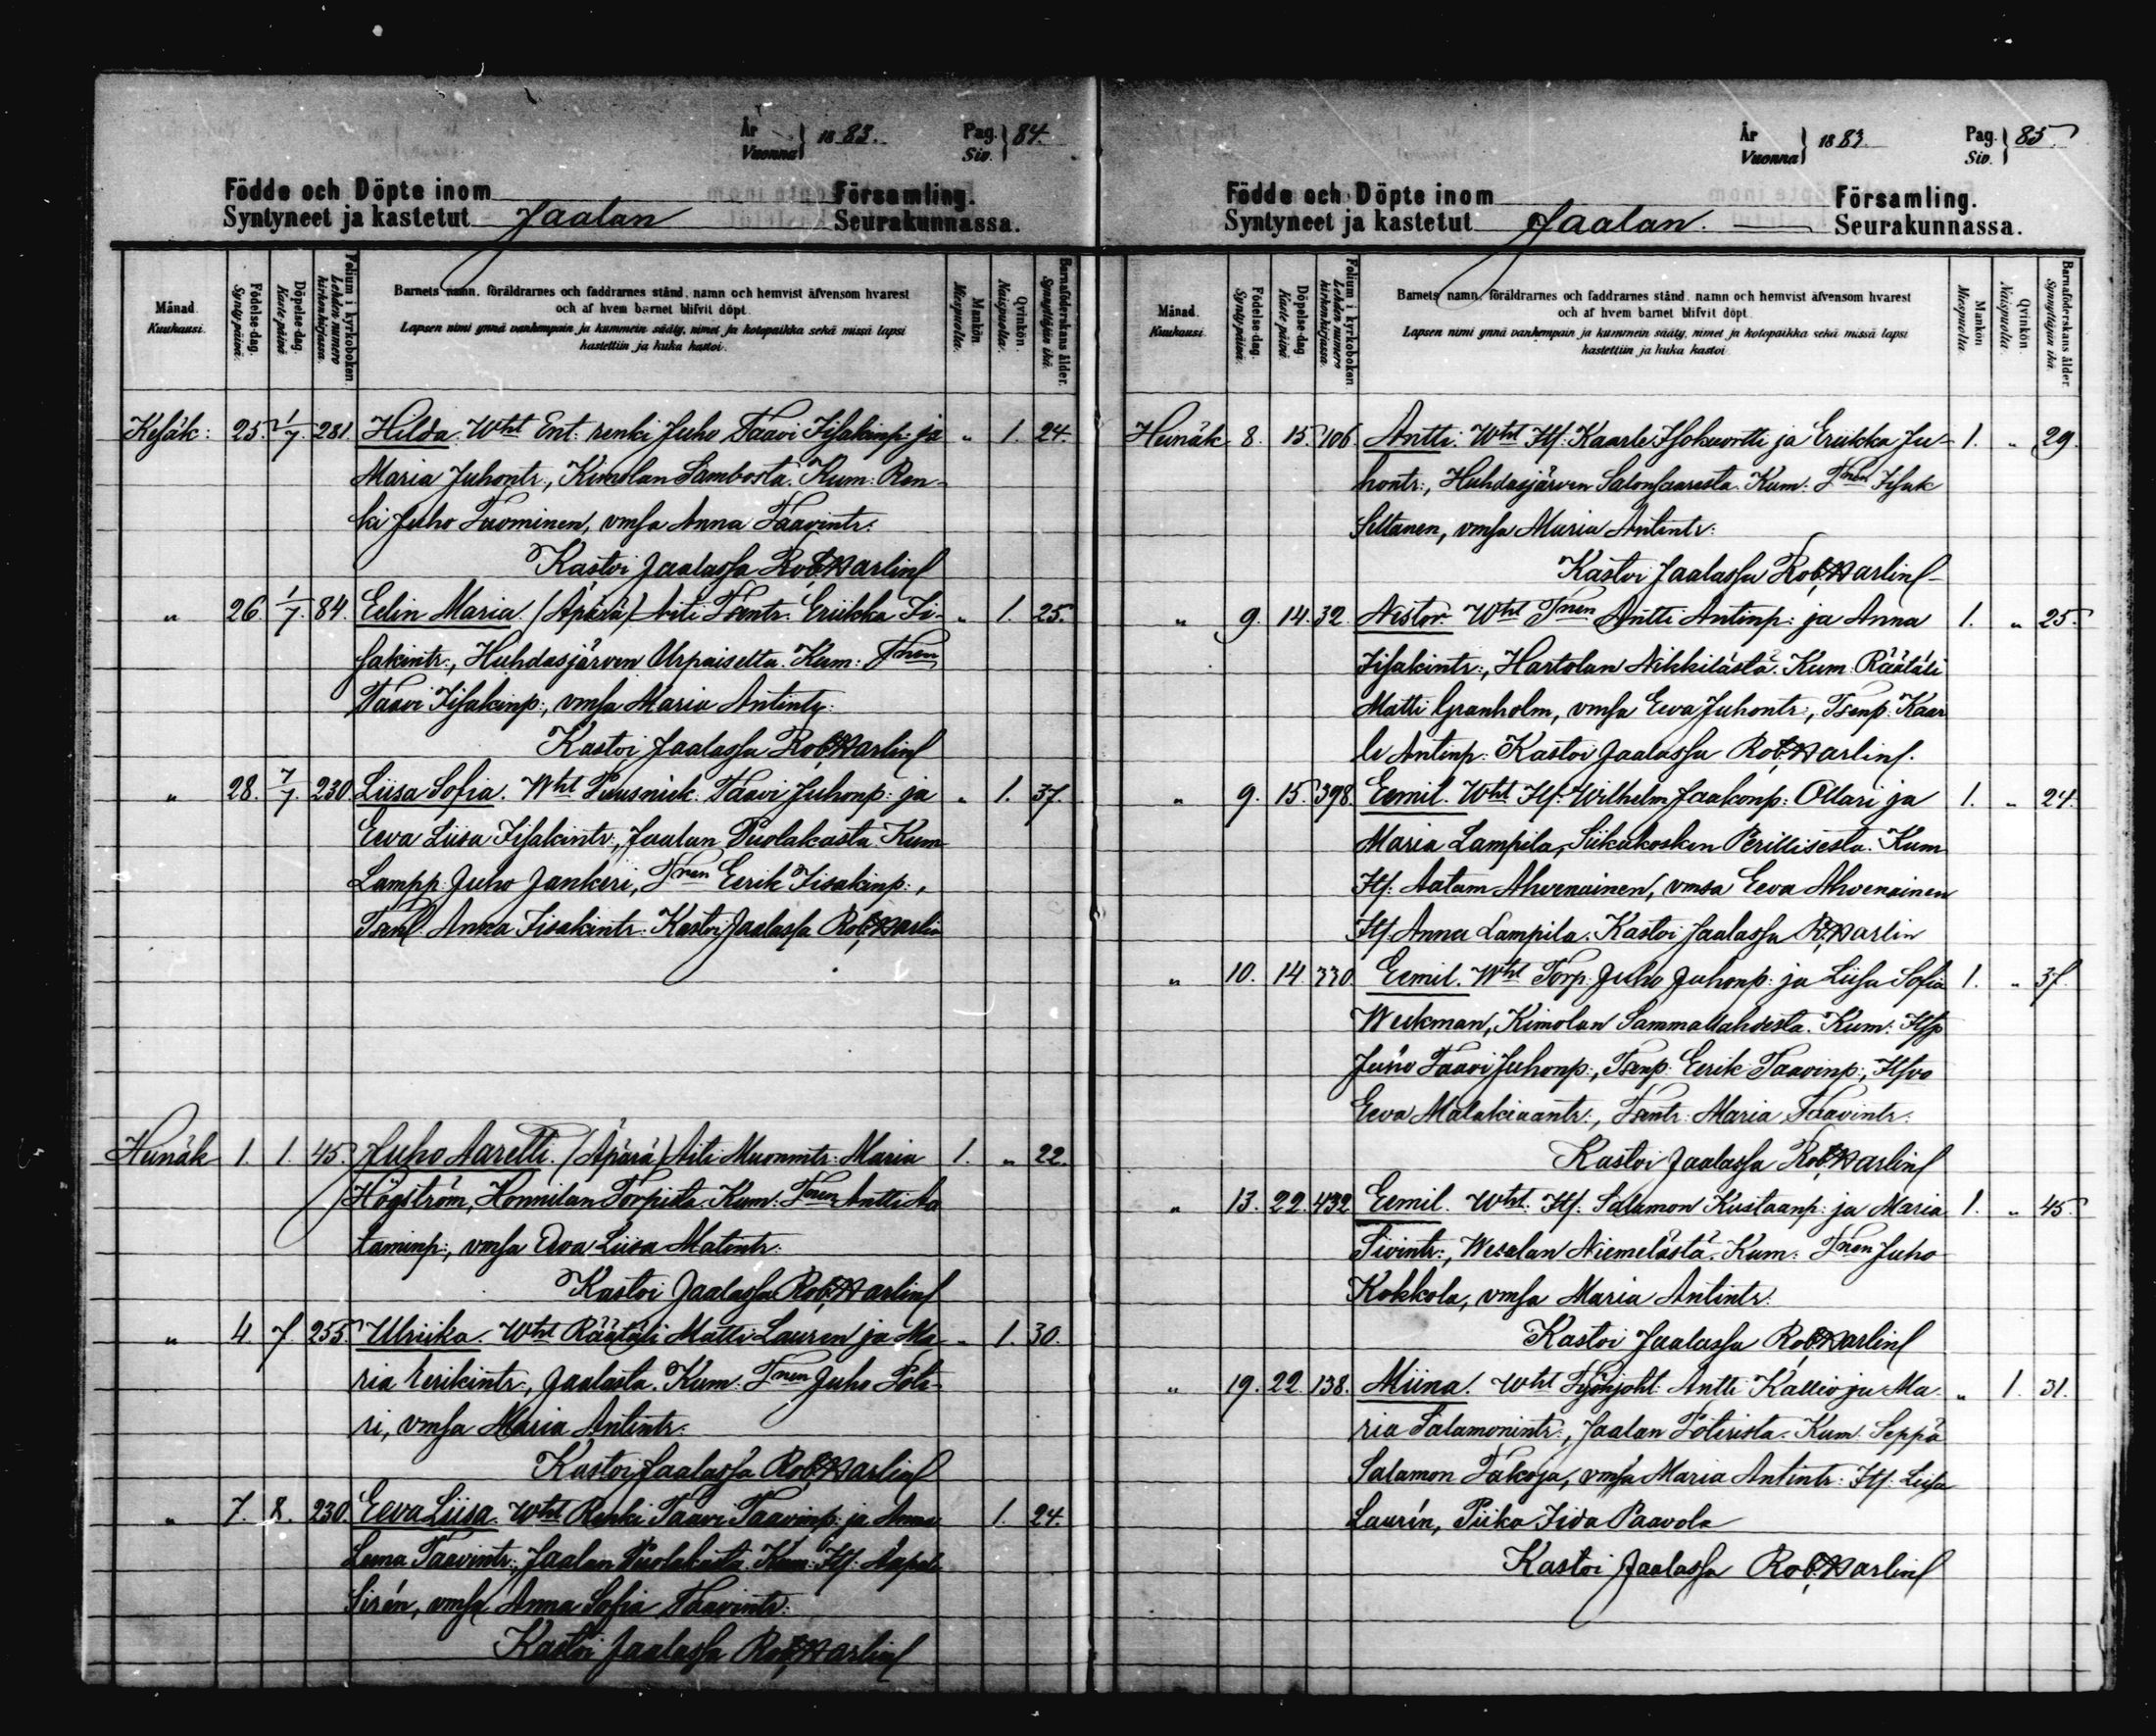 År
Vuonna } 1883. Pag.
Siv. } 84.
Födde och Döpte inom Församling.
Syntyneet ja kastetut Jaalan Seurakunnassa.
Månad. Kuukausi.
Födelse-dag. Synty päivä.
Döpelse-dag. Kaste päivä
Folium i kyrkoboken. Lehden numero kirkonkirjassa.
Barnets namn, föräldrarnes och faddrarnes stånd, namn och hemvist äfvensom hvarest
och af hvem barnet blifvit döpt.
Lapsen nimi ynnä vanhempain ja kummein sääty, nimet ja kotopaikka sekä missä lapsi
kastettiin ja kuka kastoi.
Mankön. Miespuolia.
Qvinkön. Naispuolia.
Barnaföderskans ålder. Synnyttäjän ikä.
Kesäk: 25. 1/7. 281. Hilda. Wht Ent: renki Juho Taavi Iisakinp: ja „ 1. 24.
Maria Juhontr:, Kimolan Sambosta. Kum: Ren-
ki Juho Tuominen, vmsa Anna Taavintr:
Kastoi Jaalassa Rob. Harlin
„ 26. 1/7. 84. Eelin Maria. (Äpärä) Äiti Tsentr: Eriikka Ii- „ 1. 25.
sakintr:, Huhdasjärven Urpaiselta. Kum: Tnen
Taavi Iisakinp:, vmsa Maria Antintr:
Kastoi Jaalassa Rob. Harlin
„ 28. 7/7. 230. Liisa Sofia. Wht Puusnick: Taavi Juhonp: ja „ 1. 37.
Eeva Liisa Iisakintr:, Jaalan Puolakasta. Kum
Lampp: Juho Jankeri, Tnen Eerik Iisakinp:,
Anna Iisakintr: Kastoi Jaalassa Rob. Harlin
Heinäk 1. 1. 45. Juho Aaretti. (Äpärä) Äiti Muonmtr: Maria 1. „ 22.
Högström, Honnilan Torpista. Kum: Tnen Antti Aa
taminp:, vmsa Eva Liisa Matintr:
Kastoi Jaalassa Rob. Harlin
„ 4. 7. 255. Ulriika. Wht Räätäli Matti Lauren ja Ma- „ 1. 30.
ria Eerikintr:, Jaalasta. Kum: Tnen Juho Pöte-
ri, vmsa Maria Antintr:
Kastoi Jaalassa Rob. Harlin
„ 7. 8. 230. Eeva Liisa. Wht Renki Taavi Taavinp: ja Anna 1. 24.
Leena Taavintr:, Jaalan Puolakasta. Kum: Itl:
Sirén, vmsa Anna Sofia Taavintr:
Kastoi Jaalassa Rob. Harlin
År
Vuonna } 1883. Pag.
Siv. } 85.
Födde och Döpte inom Församling.
Syntyneet ja kastetut Jaalan. Seurakunnassa.
Månad. Kuukausi.
Födelse-dag. Synty päivä.
Döpelse-dag. Kaste päivä.
Folium i kyrkoboken. Lehden numero kirkonkirjassa.
Barnets namn, föräldrarnes och faddrarnes stånd, namn och hemvist äfvensom hvarest
och af hvem barnet blifvit döpt.
Lapsen nimi ynnä vanhempain ja kummein sääty, nimet ja kotopaikka sekä missä lapsi
kastettiin ja kuka kastoi.
Mankön Miespuolia.
Qvinkön. Naispuolia.
Barnaföderskans ålder. Synnyttäjän ikä.
Heinäk 8. 15. 106. Antti. Wht Itl: Kaarle Isokuortti ja Eriikka Ju- 1. „ 29.
hontr:, Huhdasjärven Salonsaaresta. Kum: Tnen Iisak
Seltanen, vmsa Maria Antintr:
Kastoi Jaalassa Rob. Harlin
„ 9. 14. 32. Nestor. Wht Tnen Antti Antinp: ja Anna 1. „ 25.
Iisakintr:, Hartolan Nikkilästä. Kum: Räätäli
Matti Granholm, vmsa Eeva Juhontr:, Tsenp: Kaar
le Antinp: Kastoi Jaalassa Rob. Harlin.
„ 9. 15. 398. Eemil. Wht Itl: Wilhelm Jaakonp: Ollari ja 1. „ 24.
Maria Lampila, Siikakosken Perillisestä. Kum
Itl: Aatam Ahvenainen, vmsa Eeva Ahvenainen
Itl: Anna Lampila. Kastoi Jaalassa R. Harlin
„ 10. 14. 330. Eemil. Wht Torp: Juho Juhonp: ja Liisa Sofia 1. „ 37.
Weckman, Kimolan Sammallahdesta. Kum:
Juho Taavi Juhonp:, Tsenp: Eerik Taavinp:,
Eeva Malakiaantr:, Tsentr: Maria Taavintr:
Kastoi Jaalassa Rob. Harlin
„ 13. 22. 432 Eemil. Wht: Itl: Salamon Kustaanp: ja Maria 1. „ 45.
Siivintr:, Weralan Niemelästä. Kum: Tnen Juho
Kokkola, vmsa Maria Antintr:
Kastoi Jaalassa Rob. Harlin
„ 19. 22. 138. Miina. Wht Työnjoht: Antti Kallio ja Ma- „ 1. 31.
ria Salamonintr:, Jaalan Pöteristä. Kum: Seppä
Salamon Takoja, vmsa Maria Antintr: Itl: Liisa
Laurin, Piika Iida Paavola
Kastoi Jaalassa Rob. Harlin